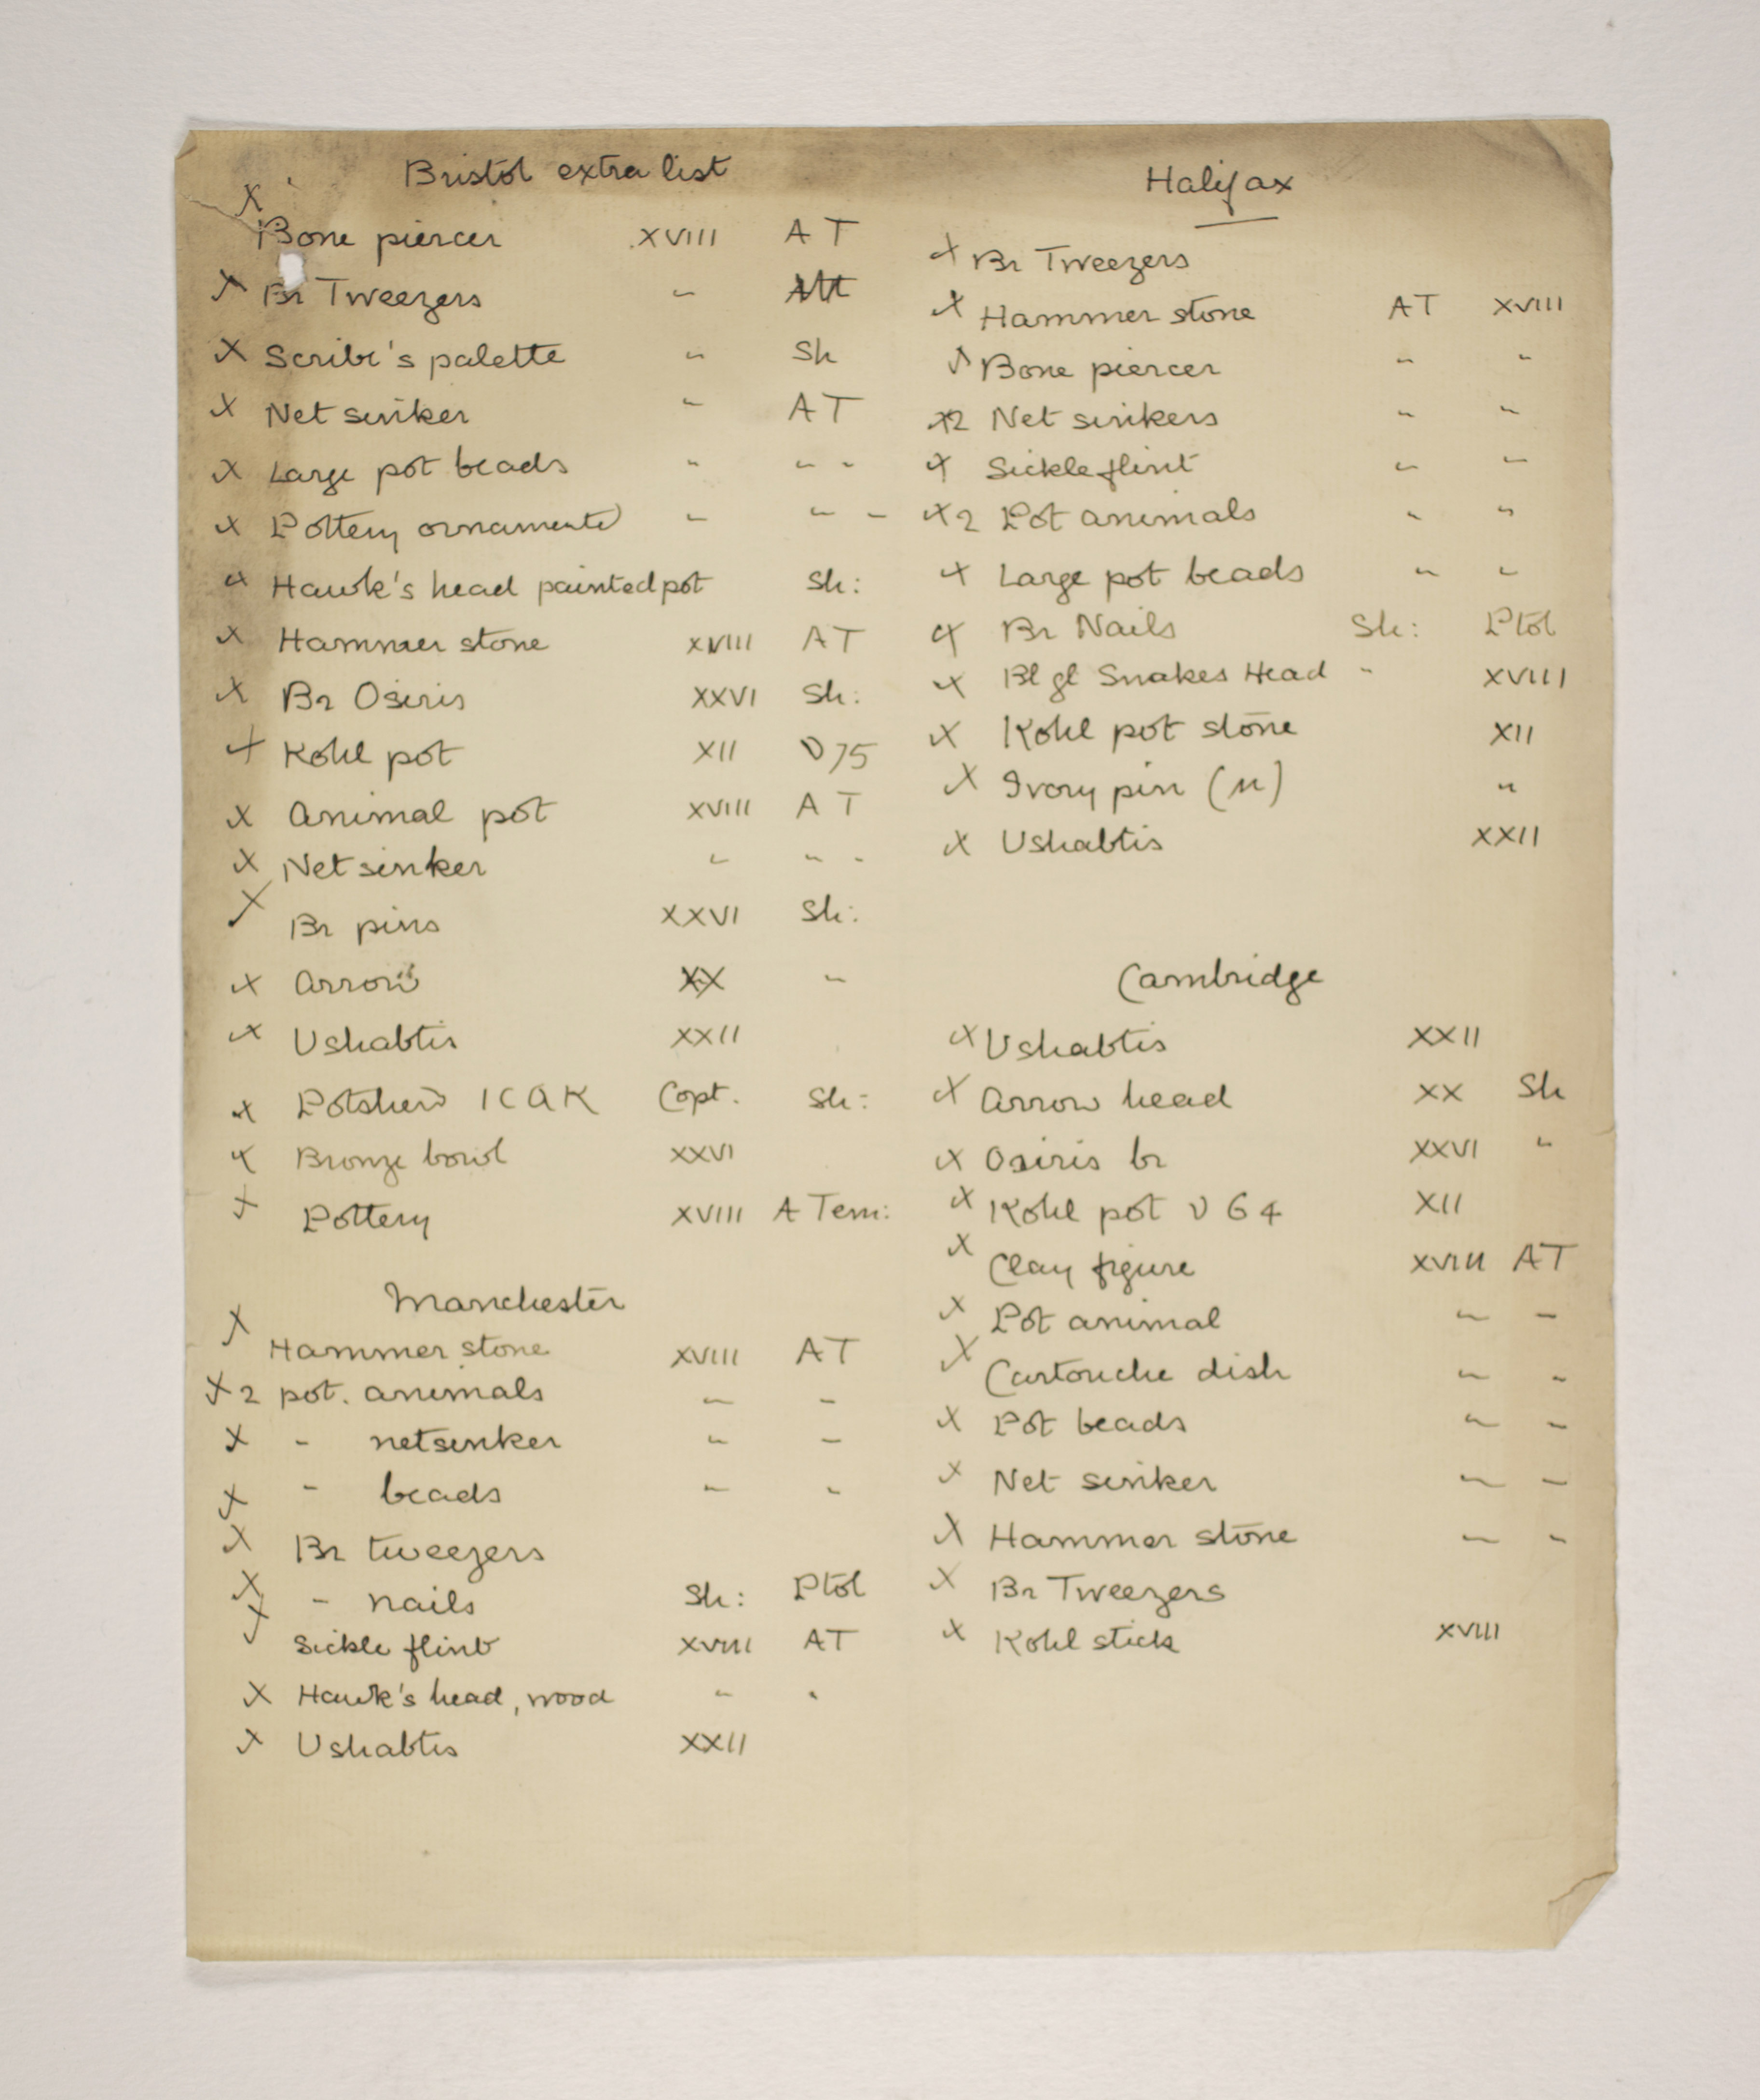 Bristol extra list
X Bone piercer XVIII A T
X Br Tweezers "
X Scribe's palette " Sh
X Net sinker " A T
X Large pot beads " " "
X Pottery ornaments " " "
X Hawk's head painted pot Sh:
X Hammer stone XVIII A T
X Br Osiris XXVI Sh:
X Kohl pot XII V 75
X Animal pot XVIII A T
X Net sinker " " "
X Br pins XXVI Sh:
X Arrow XX "
X Ushabtis XXII
X Potsherd Copt. Sh:
X Bronze bowl XXVI
X Pottery XVIII A Tem:
Manchester
X Hammer stone XVIII AT
X 2 pot. animals " "
X " netsinker " "
X " beads " "
X Br tweezers
X " nails Sh: Ptol
X Sickle flint XVIII AT
X Hawk's head, wood " "
X Ushabtis XXII
Halifax
X Br Tweezers
X Hammer stone AT XVIII
X Bone piercer " "
X2 Net sinkers " "
X Sickle flint " "
X2 Pot animals " "
X Large pot beads " "
X Br Nails Sh: Ptol
X Bl gl Snakes Head " XVIII
X Kohl pot stone XII
X Ivory pin "
X Ushabtis XXII
Cambridge
X Ushabtis XXII
X Arrow head XX Sh
X Osiris br XXVI "
X Kohl pot V 64 XII
X Clay figure XVIII AT
X Pot animal " "
X Cartouche dish " "
X Pot beads " "
X Net sinker " "
X Hammer stone " "
X Br Tweezers
X Kohl stick XVIII